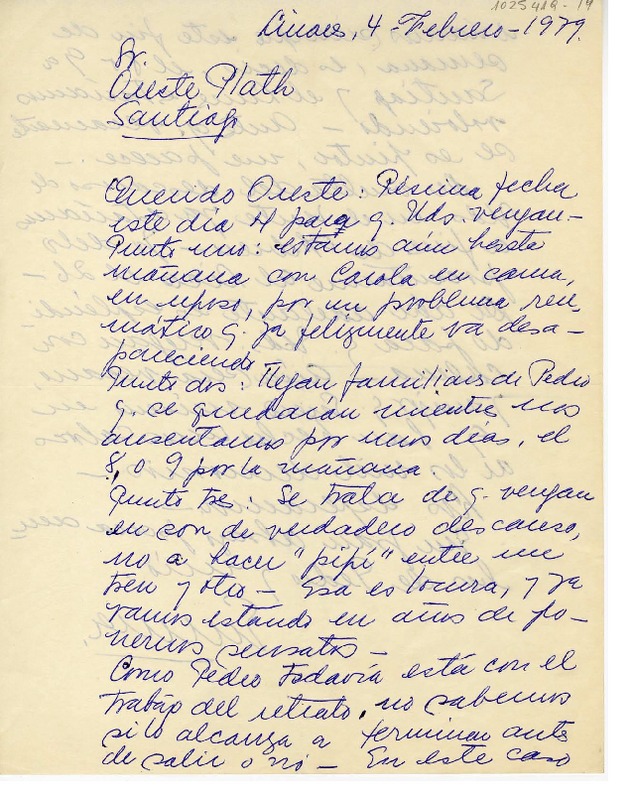 1025419-19
Linares, 4 - Febrero - 1979.
Sr.
Oreste Plath
Santiago
Querido Oreste: Pésima fecha
este día 4 para q. Uds. vengan -
Punto uno: estamos aún hasta
mañana con Carola en cama,
en reposo, por un problema reu-
mático q. ya felizmente va desa-
pareciendo -
Punto dos: llegan familiares de Pedro
q. se quedarán mientras nos
ausentamos por unos días, el
8, o 9 por la mañana
Punto tres: Se trata de q. vengan
en son de verdadero descanso,
no a hacer "pipí" entre un
tren y otro - Esa es locura, y ya
vamos estando en años de po-
nernos sensatos -
Como Pedro todavía está con el
trabajo del retrato, no sabemos
si lo alcanza a terminar antes
de salir o no - En este caso